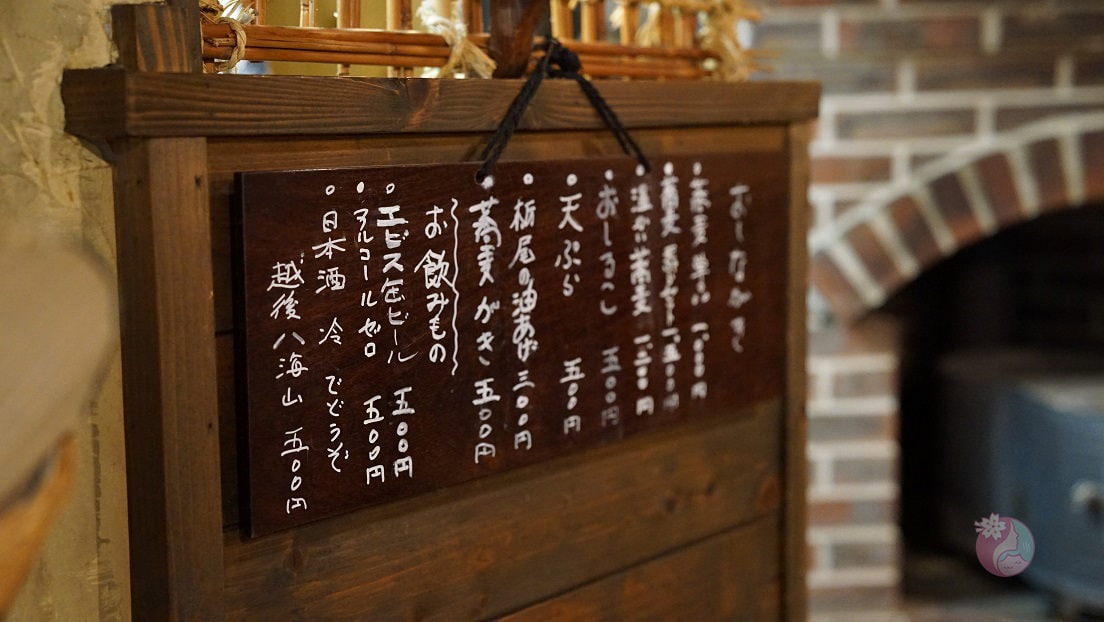 おしながき
蕎麦 単品 一、〇〇〇円
蕎麦 一、五〇〇円
温かい蕎麦 一、二〇〇円
おしるこ 五〇〇円
天ぷら 五〇〇円
栃尾の油あげ 三〇〇円
蕎麦がき 五〇〇円
お飲みもの
エビス缶ビール 五〇〇円
アルコールゼロ 五〇〇円
日本酒 冷 でどうぞ
越後八海山 五〇〇円